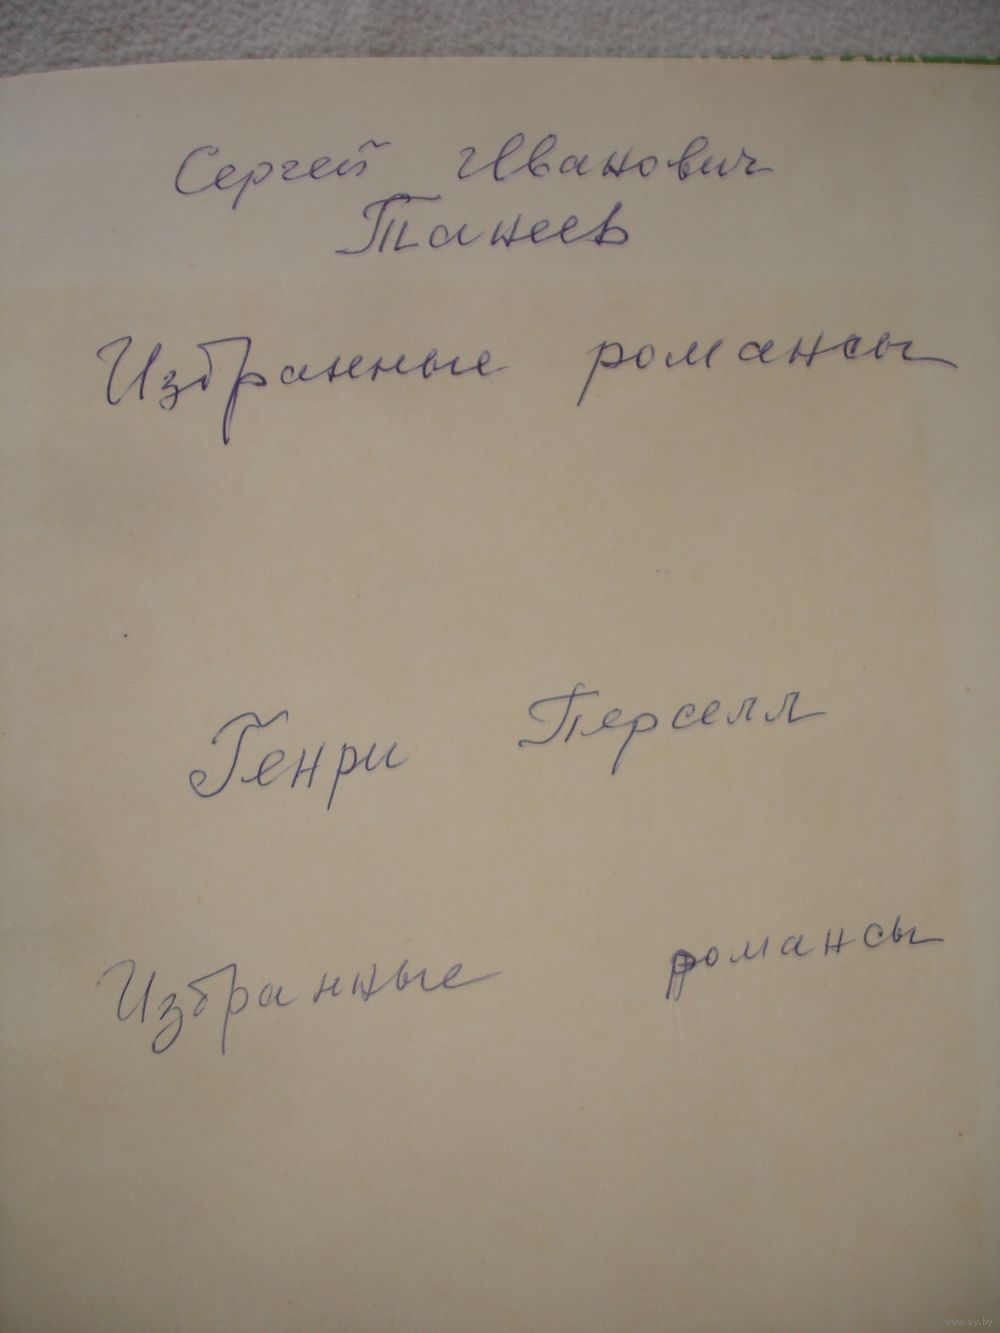 Сергей Иванович
Танеев
Избранные романсы
Генри Перселл
Избранные романсы
www.ay.by